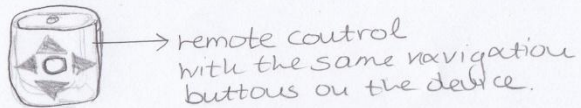 remote control
with the same navigation
buttons on the device.